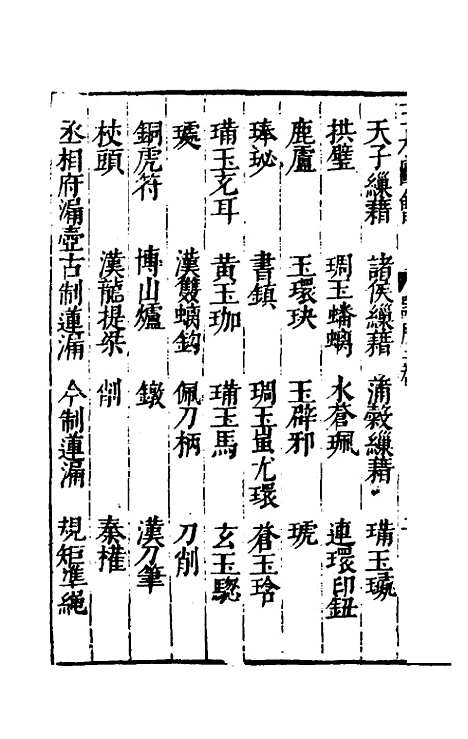 天子繅藉　諸侯繅藉　蒲穀繅藉　璊玉瓛
拱璧　琱玉蟠螭　水蒼珮　連環印鈕
鹿盧　玉環玦　玉辟邪　琥
琫珌　書鎮　琱玉蚩尤環　蒼玉琀
璊玉充耳　黃玉珈　璊玉馬　玄玉驄
璏　漢雙螭鈎　佩刀柄　刀削
銅虎符　博山爐　鐓　漢刀筆
杖頭　漢龍提梁　削　秦權
丞相府漏壺　古制蓮漏　今制蓮漏　規矩準繩